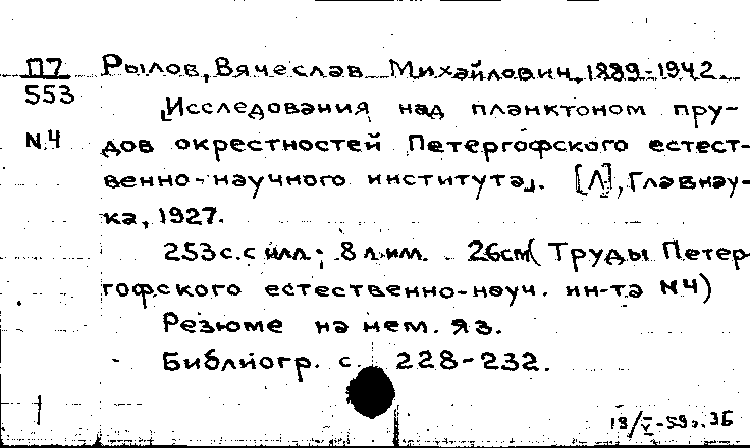 П7 Рылов, Вячеслав Михайлович, 1889-1942
553 „Исследования над планктоном пру-
N4 дов окрестностей Петергофского естест-
венно-научного института„. [Л], Главнау-
ка, 1927.
253 с. с илл.; 8 л. илл. 26см (Труды Петер
гофского естественно-науч. ин-та N4)
Резюме на нем. яз.
Библиогр. с. 228-232.
1 18/V-59г. ЗБ